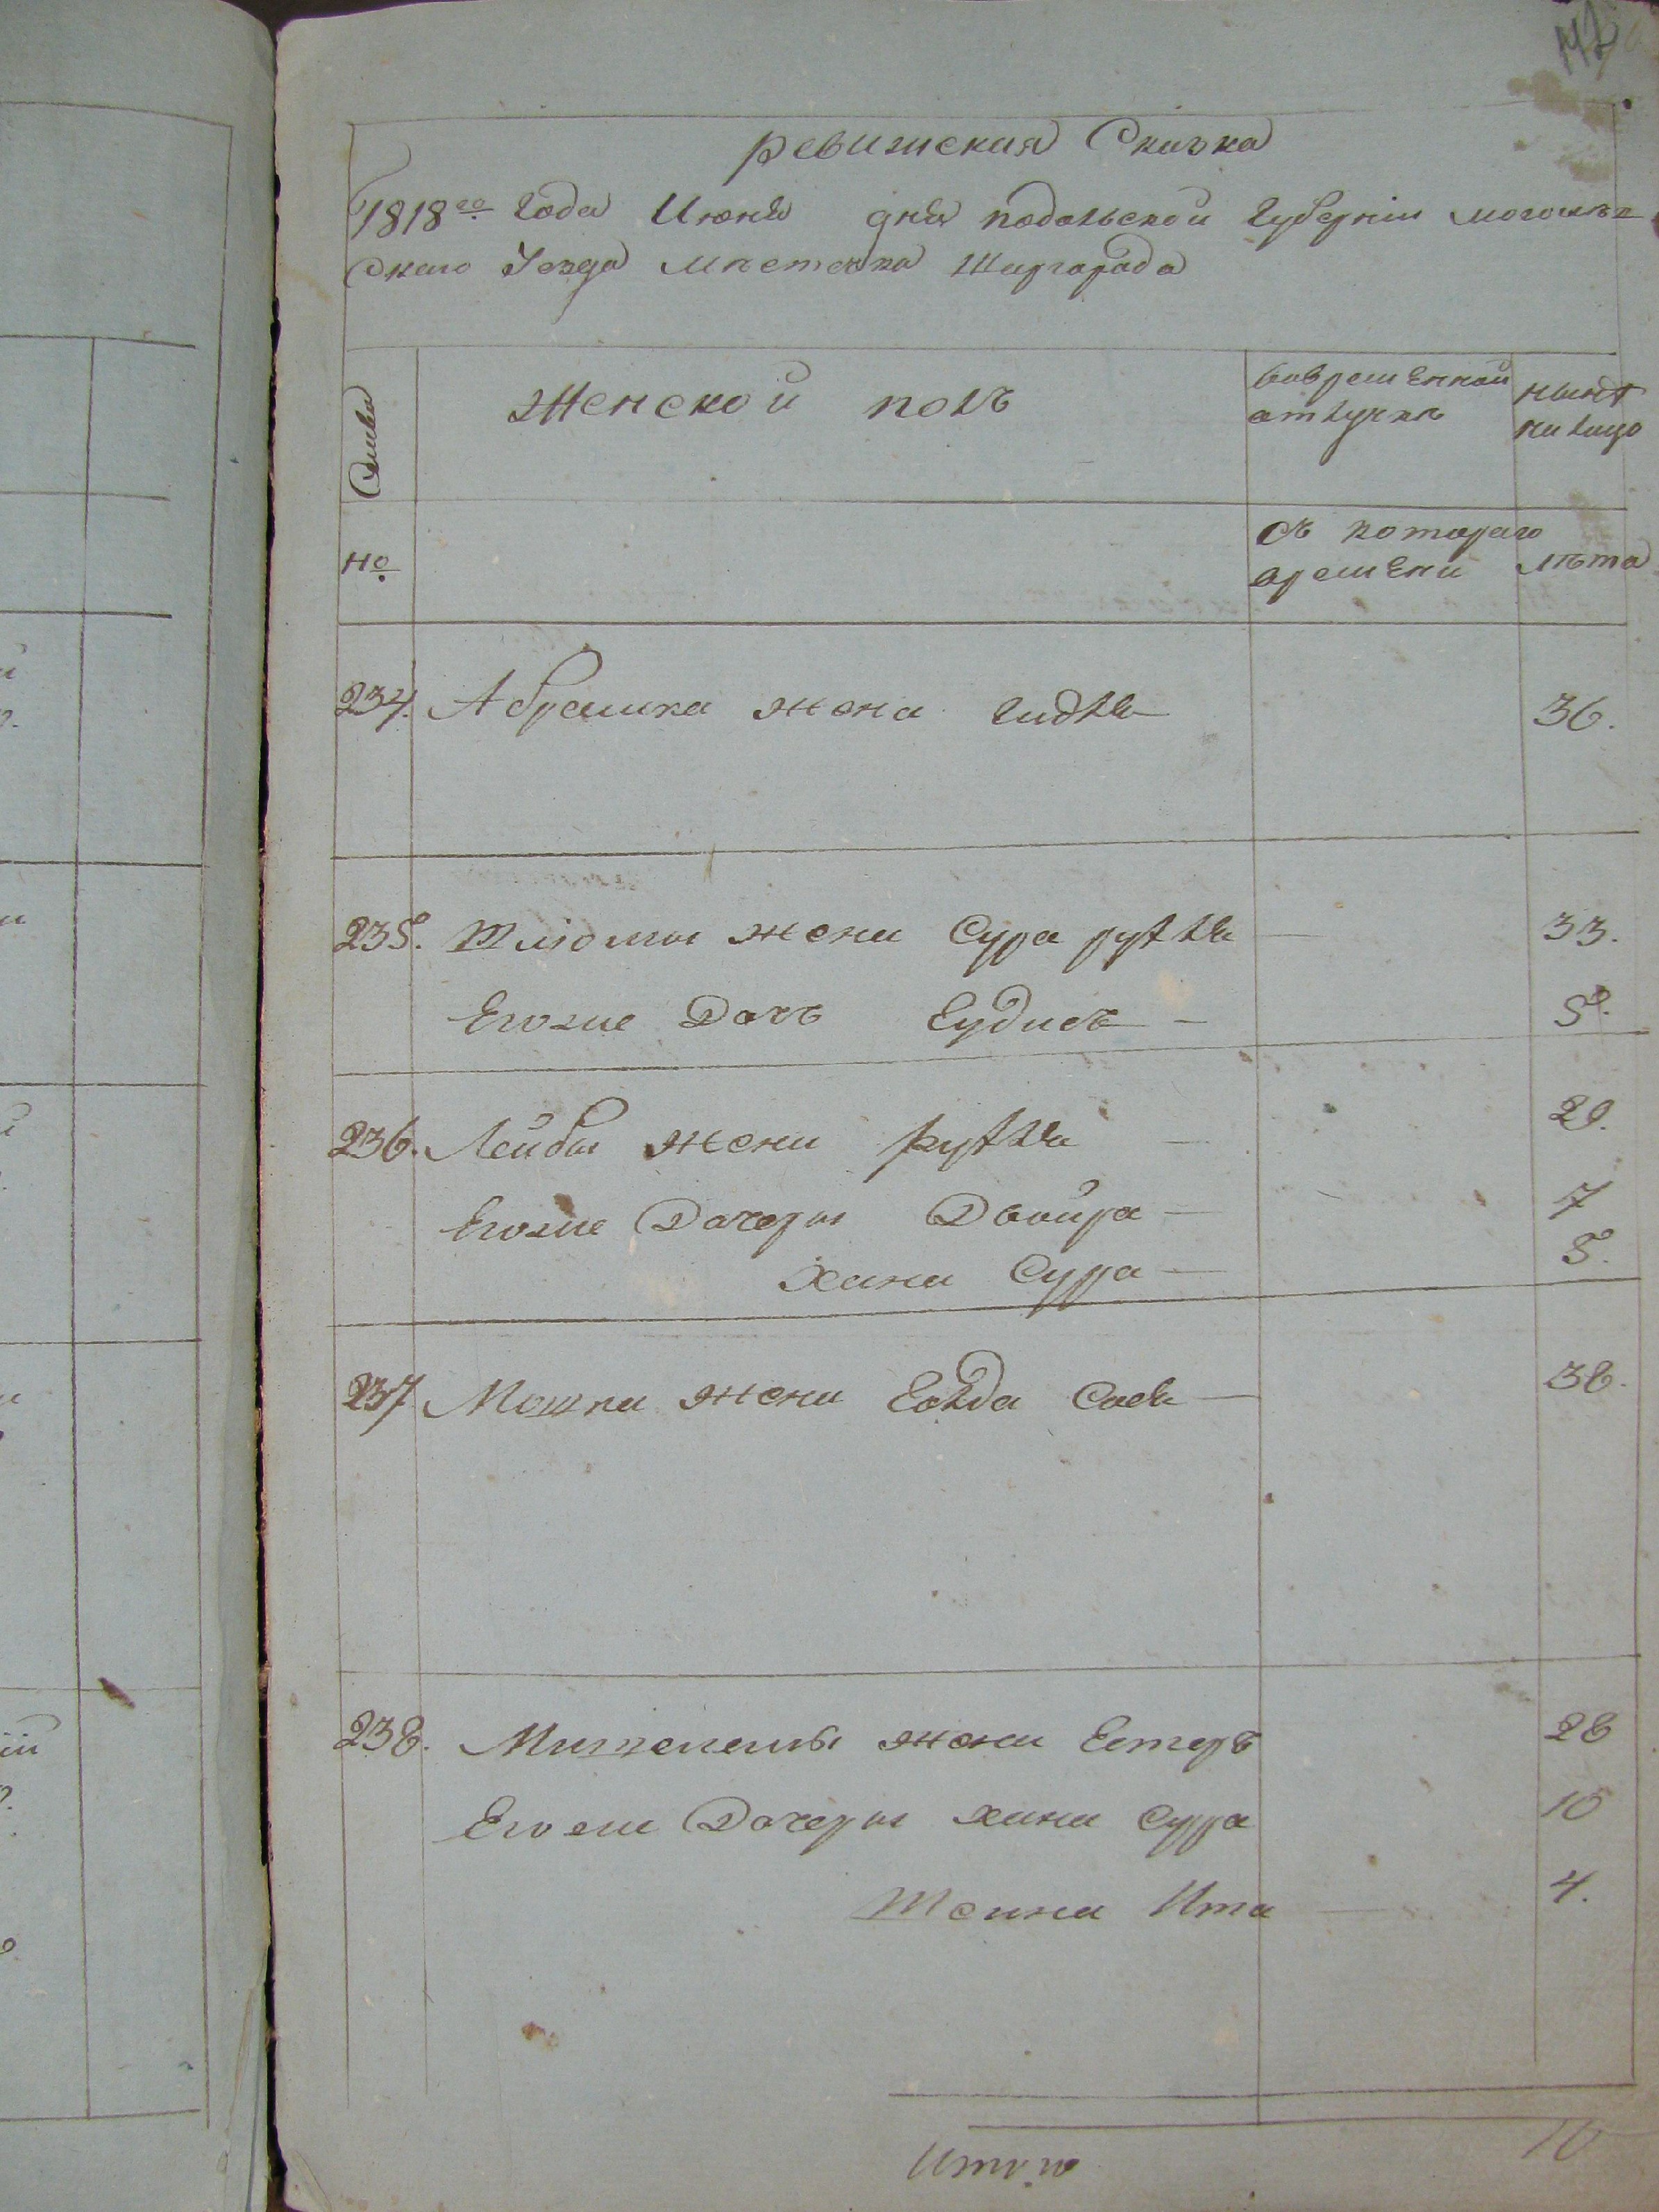 142
ревижская Сказка
1818го Года Июня дня подольской Губернiи могилев
скаго Уезда мѣстечка Шаргорода
Семьи
Женской полъ
вовременной
отлучкѣ
нынѣ
на лицо
№
съ котораго
времени
лѣта
234. Абрамка жена Гидля 36.
235. Шлiомы жена Сура рухля 33.
Егоже Дочь Еудисъ 5.
236. Лейбы жена рухля 29.
Егоже Дочеры Двойра 7
хана Сура 5.
237 Мошка жена Голда Сося 38.
238. жена Естеръ 28
Егоже Дочеры хана Сура 10
Шейна Ита 4.
Итого 10